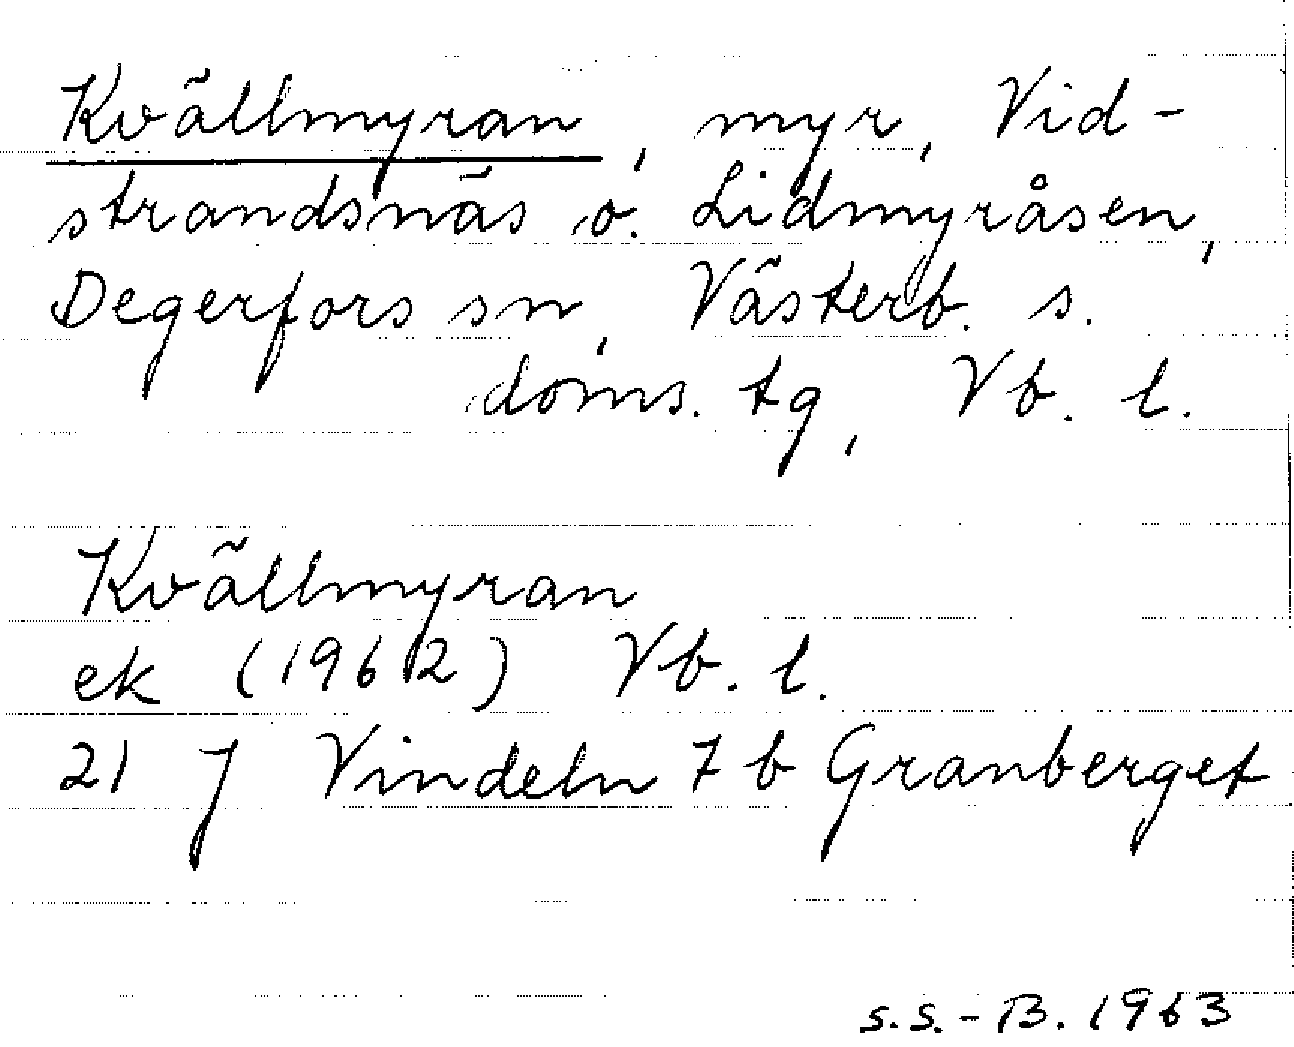 Kvällmyran, myr, Vid-
strandsnäs o. Lidmyråsen,
Degerfors sn, Västerb. s.
doms. tg, Vb. l.
Kvällmyran
ek (1962) Vb. l.
21 J Vindeln 7 b Granberget
s.s.-B. 1963